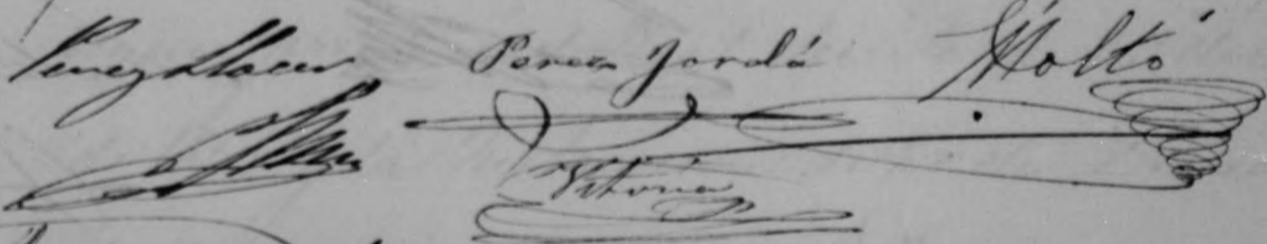 Perez Llacer Perez Jordá Moltó
Vitoria